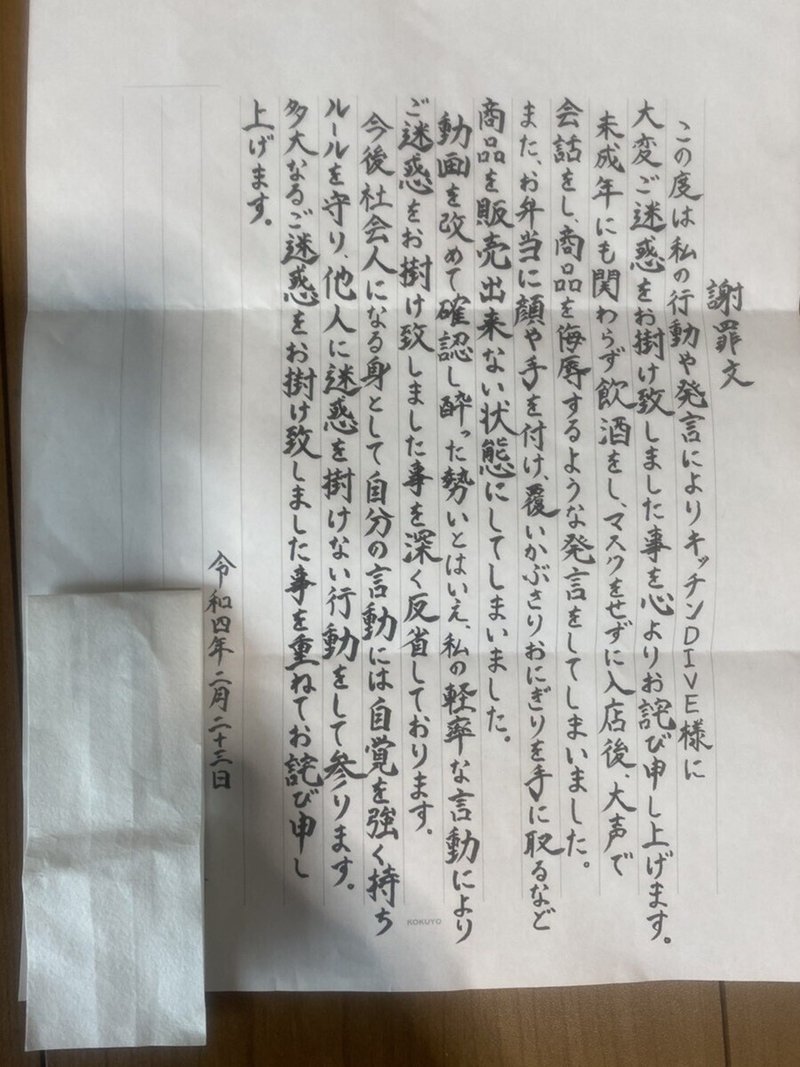 謝罪文
この度は私の行動や発言によりキッチンDIVE様に
大変ご迷惑をお掛け致しました事を心よりお詫び申し上げます。
未成年にも関わらず飲酒をし、マスクをせずに入店後、大声で
会話をし、商品を侮辱するような発言をしてしまいました。
また、お弁当に顔や手を付け、覆いかぶさりおにぎりを手に取るなど
商品を販売出来ない状態にしてしまいました。
動画を改めて確認し酔った勢いとはいえ、私の軽率な言動により
ご迷惑をお掛け致しました事を深く反省しております。
今後社会人になる身として自分の言動には自覚を強く持ち
ルールを守り、他人に迷惑を掛けない行動をして参ります。
多大なるご迷惑をお掛け致しました事を重ねてお詫び申し
上げます。
令和四年二月二十三日
KOKUYO